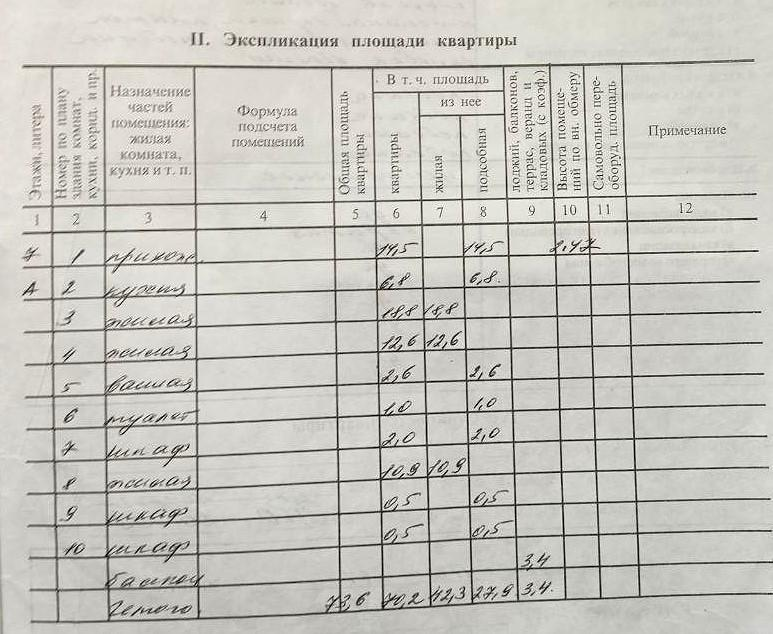 II. Экспликация площади квартиры
Этажи, литера | Номер по плану здания комнат, кухни, корид. и пр. | Назначение частей помещения: жилая комната, кухня и т. п. | Формула подсчета помещений | Общая площадь квартиры | В т. ч. площадь | из нее | квартиры | жилая | подсобная | лоджий, балконов, террас, веранд и кладовых (с коэф.) | Высота помещений по вн. обмеру | Самовольно переоборуд. площадь | Примечание
1 2 3 4 5 6 7 8 9 10 11 12
7 1 прихож. 14,5 14,5 2.47
А 2 кухня 6,8 6,8.
3 жилая 18,8 18,8
4 жилая 12,6 12,6
5 ванная 2,6 2,6
6 туалет 1,0 1,0
7 шкаф 2,0 2,0
8 жилая 10,9 10,9
9 шкаф 0,5 0,5
10 шкаф 0,5 0,5
балкон 3,4
Итого 73,6 70,2 42,3 27,9 3,4.